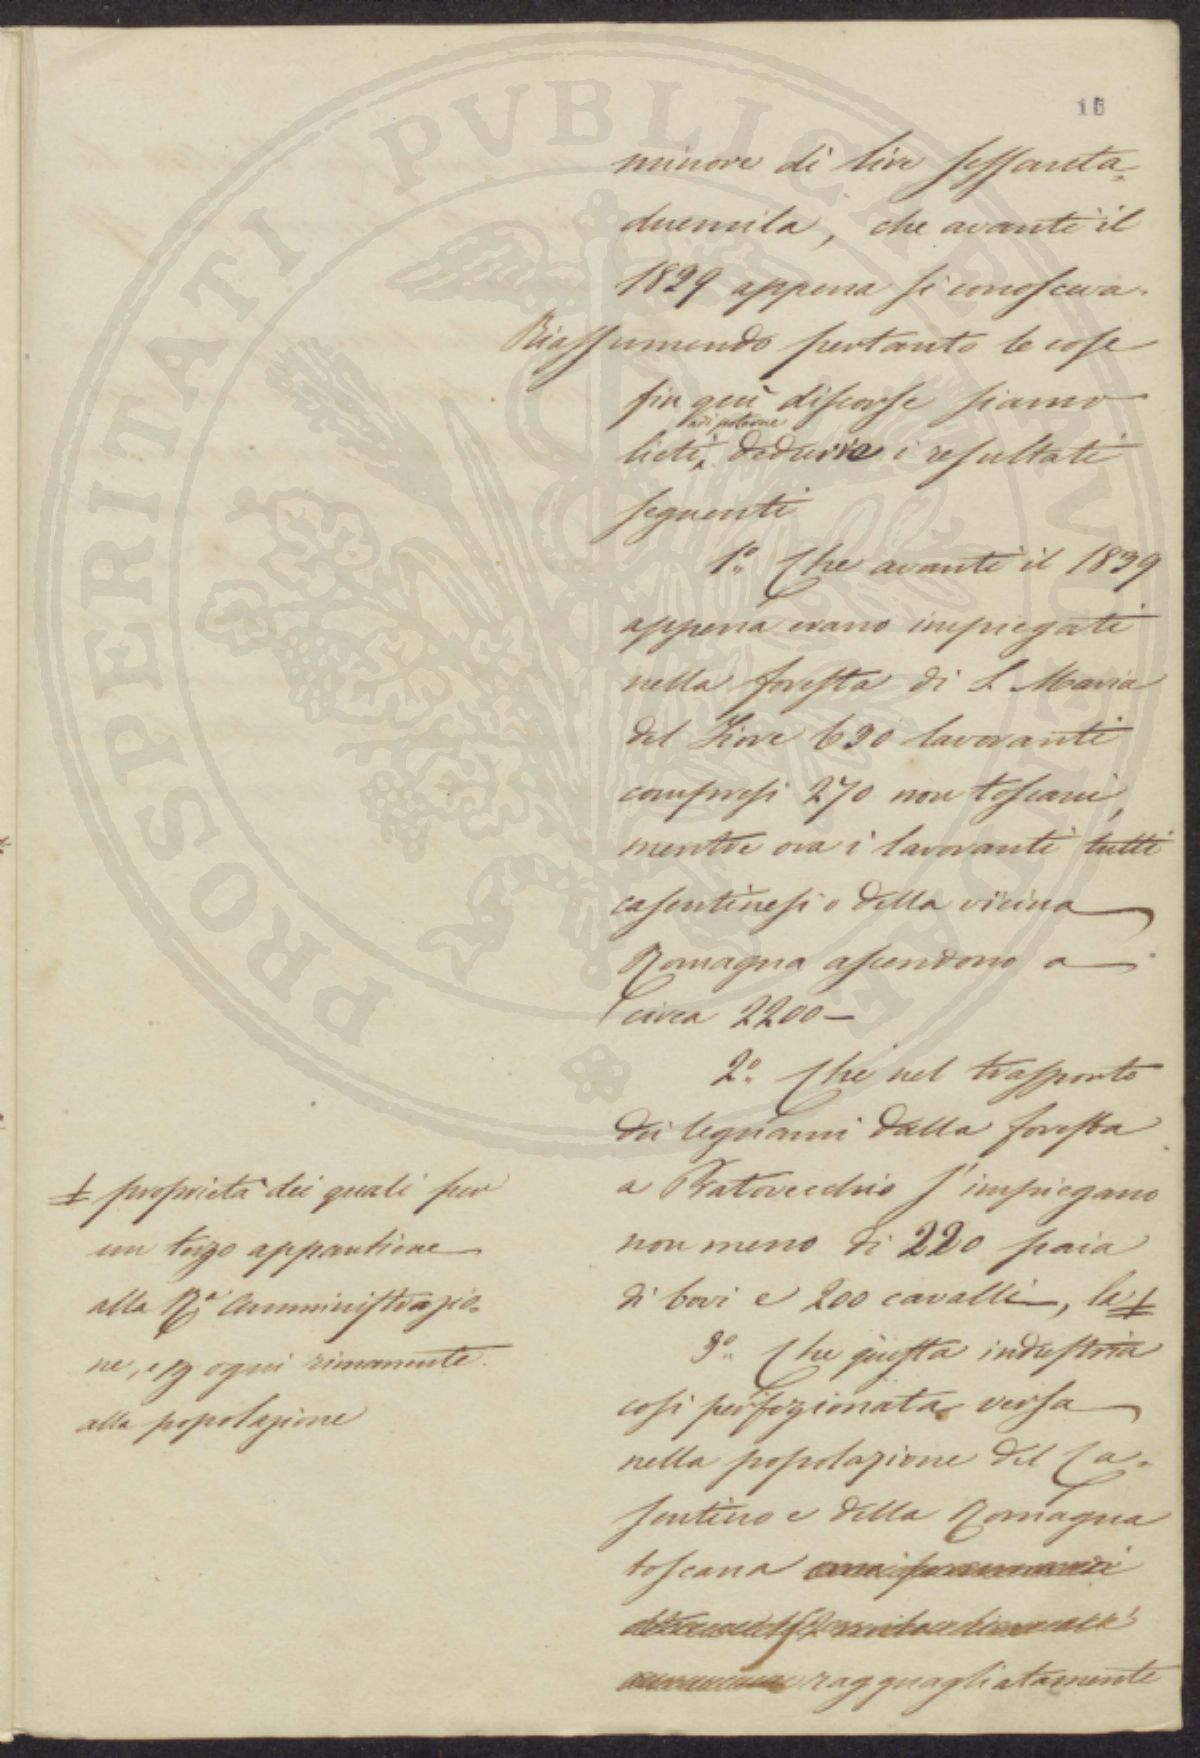 16
minore di lire sessanta=
duemila, che avanti il
1829 appena si conosceva.
Riassumendo pertanto le cose
fin quì discorse siamo
lieti di poterne dedurre i resultati
seguenti
1.° Che avanti il 1839
appena erano impiegati
nella foresta di S. Maria
del Fiore 630 lavoranti
compresi 270 non toscani,
mentre ora i lavoranti tutti
casentinesi o della vicina
Romagna ascendono a
circa 2200 —
2.° Che nel trasporto
dei legnami dalla foresta
a Pratovecchio s'impiegano
non meno di 220 paia
di bovi e 200 cavalli, la ‡
3.° Che questa industria
così perfezionata versa
nella popolazione del Ca=
sentino e della Romagna
toscana
ragguagliatamente
‡ proprietà dei quali per
un terzo appartiene
alla R.ª Amministrazio=
ne, e ogni rimanente
alla popolazione
PROSPERITATI PVBLICAE AVGENDAE